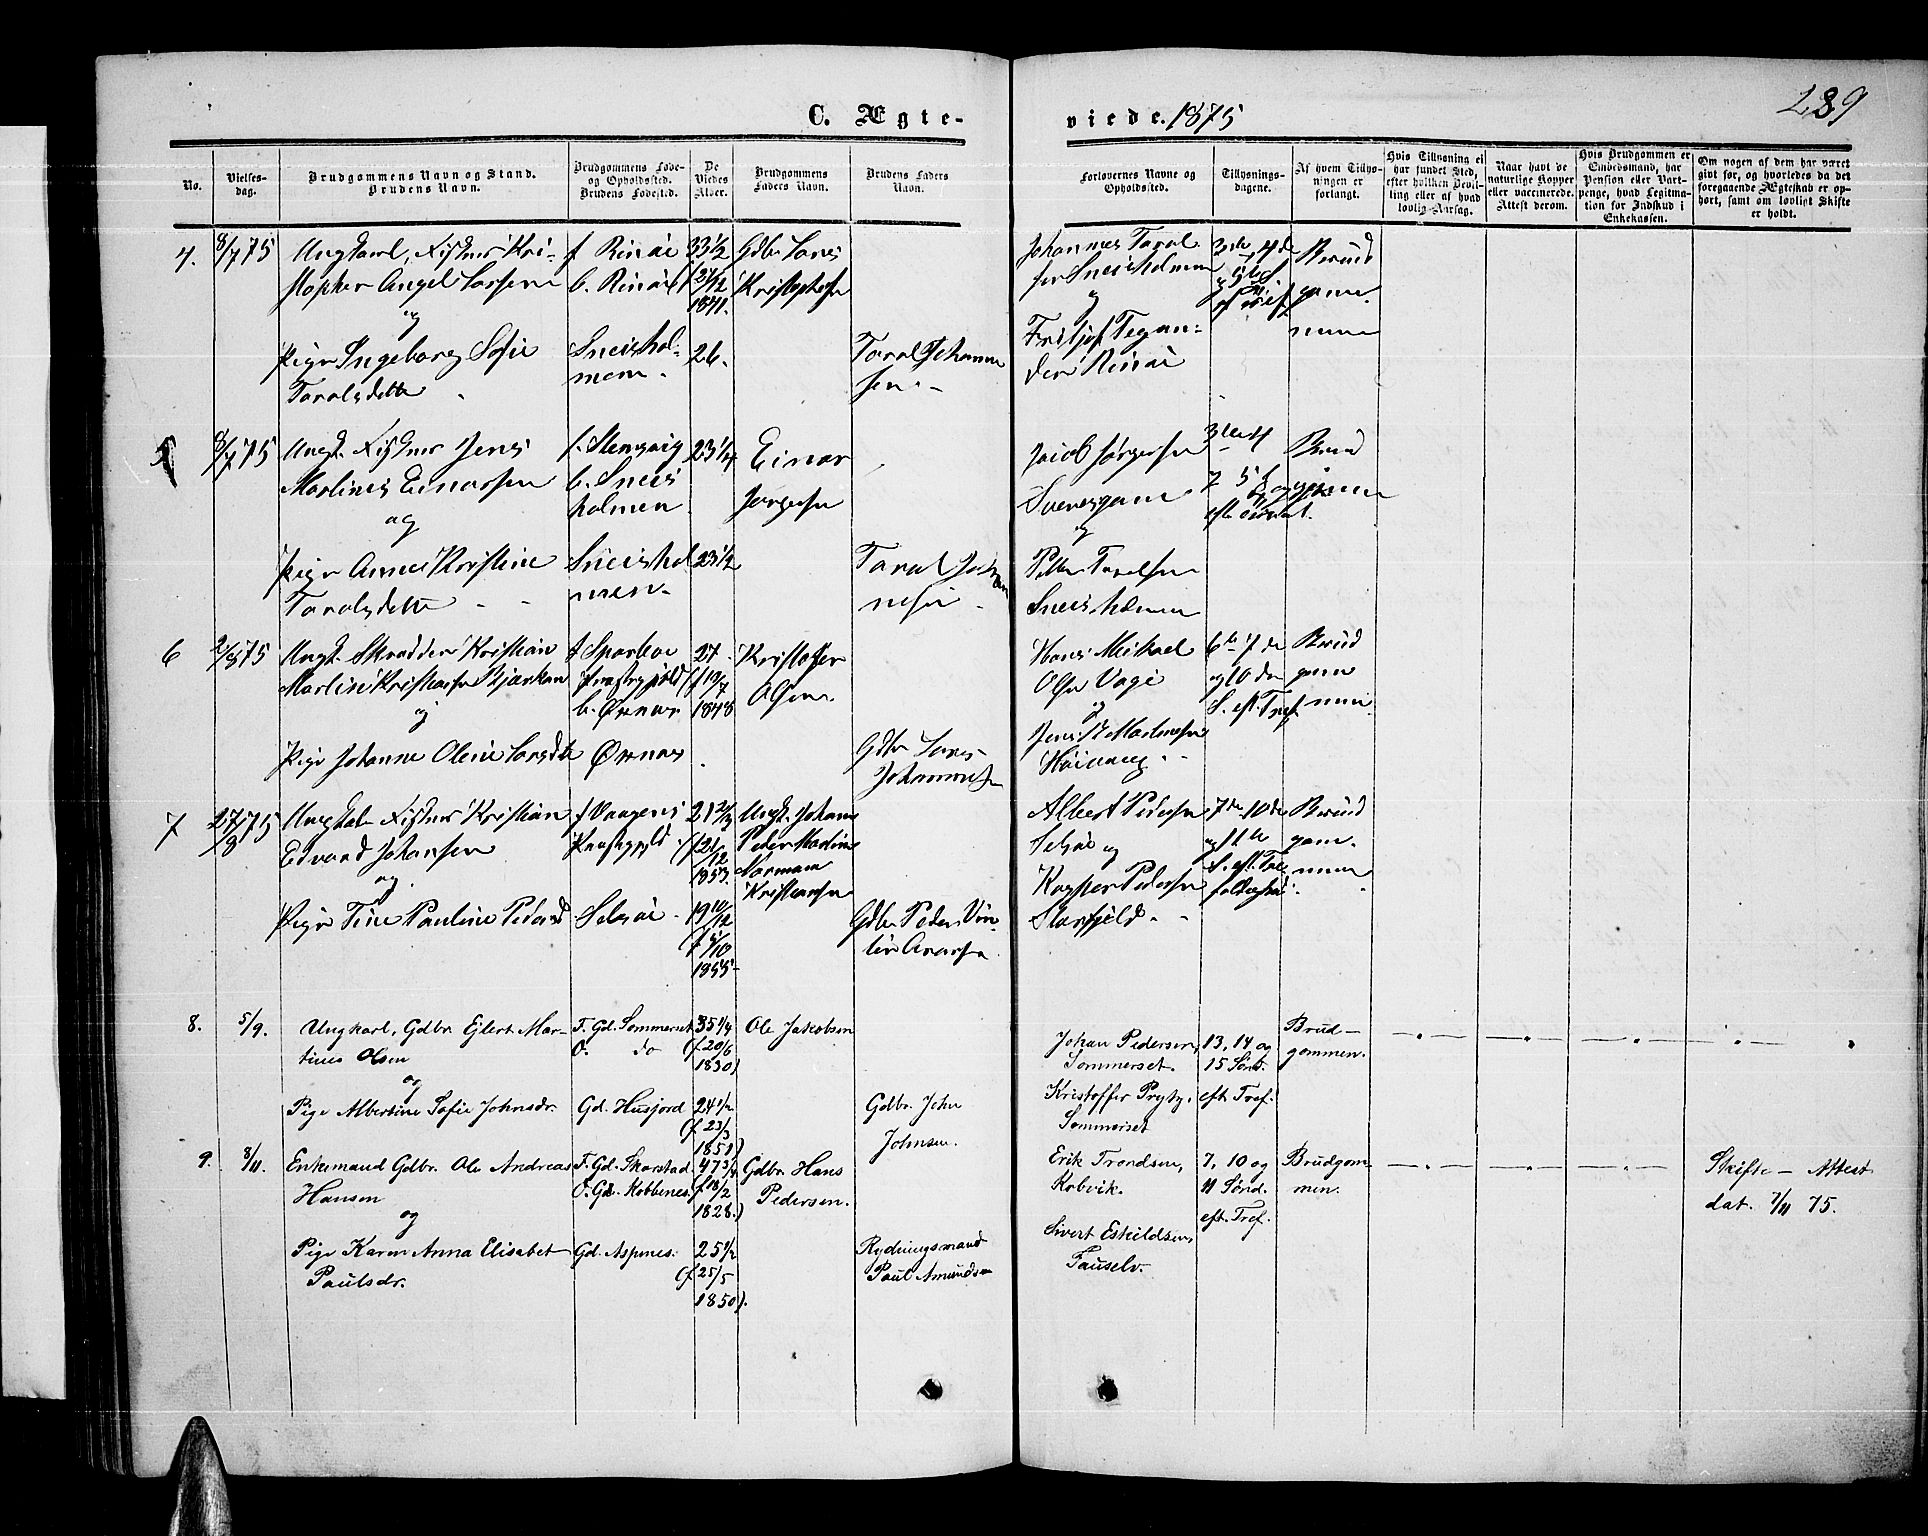 289
C. Ægte-
viede. 1875
No.
Vielses-
dag.
Brudgommens Navn og Stand.
Brudens Navn.
Brudgommens Føde-
og Opholdssted.
Brudens Fødested.
De
Viedes
Alder.
Brudgommens
Faders Navn.
Brudens Faders
Navn.
Forlovernes Navne og
Opholdsted.
Tillysnings-
dagene.
Af hvem Tillys-
ningen er
forlangt.
Hvis Tillysning ei
har fundet Sted,
efter hvilken Bevil-
ling eller af hvad
lovlig Aarsag.
Naar havt de
naturlige Kopper
eller vaccinerede.
Attest derom.
Hvis Brudgommen er
Embedsmand, har
Pension eller Vart-
penge, hvad Legitima-
tion for Indskud i
Enkekassen.
Om nogen af dem har været
givt før, og hvorledes da det
foregaaende Ægteskab er op-
hørt, samt om lovligt Skifte
er holdt.
4. 8/7 75
Ungkarl, Fisker Kri-
stopher Angel Larsen
og
Pige Ingeborg Sofie
Taralsdatter
33 1/2
1841.
26.
Gdbr. Lars
Kristophersen
Taral Johanne
sen
Johannes Taral
sen
og
3die, 4de
Brud
gom
men
5 8/7 75
Ungk. Fisker Jens
Martines Einarsen
og
Pige Anne Kristine
Taralsdatter
23 1/4
23 1/2
Einar
Jørgensen
Taral Johan
nesen
Jacob Jørgensen
og
Petter Taralsen
Brud
gommen
6 2/8 75
Ungk. Skrædder Kristian
Martin Kristofersen
og
Pige Johanne Oline Larsdtr
b. Ørnes
Ørnes
27
(f 19/7
1848
Kristoffer
Olsen
Gdbr Lars
Johannesen
Hans Mickael
Olsen Vage
og
Jens Martinesen
6te 7de
og 10de
S. eft. Tref.
Brud
gom
men
7 27/8 75
Ungkarl Fisker Kristian
Edvard Johansen
og
Pige Tine Pauline Pedersd
f Vaagens
Præstegjeld
Selsøi
21 2/3
(f 21/12
1853.
19 10/12
1855
Ungk. Johan
Peder Martin
Norman
Kristiansen
Gdbr Peder
Albert Pedersen
Selsøi og
Kasper Pedersen
Storfjeld
7de 10de
og 11te
S. eft. Tre
foldighed.
Brud
gom
men
8. 5/9.
Ungkarl, Gdbr. Ejlert Mar-
tines Olsen
og
Pige Albertine Sofie Johnsdr.
F. Gd. Sommerset
O. do
Gd. Husjord
35 1/4
(f. 20/6
1830)
24 1/2
(f. 23/3
1851)
Ole Jakobsen
Gdbr. John
Johnsen.
Johan Pedersen,
Sommerset.
Kristoffer Prytz,
Sommerset
13, 14 og
15 Sønd.
eft Tref.
Brud-
gommen.
9. 8/11.
Enkemand Gdbr. Ole Andreas
Hansen
og
Pige Karen Anna Elisabet
Paulsdr.
F. Gd. Skarstad
O. Gd. Kobbenes.
Gd. Aspenes.
47 3/4
(f 18/2
1828.)
25 1/2
(f 25/5
1850).
Gdbr. Hans
Pedersen.
Rydningsmand
Paul Amundsen
Erik Trondsen,
Kobvik.
Sivert Eskildsen,
Fauselv.
7, 10 og
11 Sønd.
eft. Tref.
Brudgom-
men.
Skifte - Attest
dat. 7/11 75.